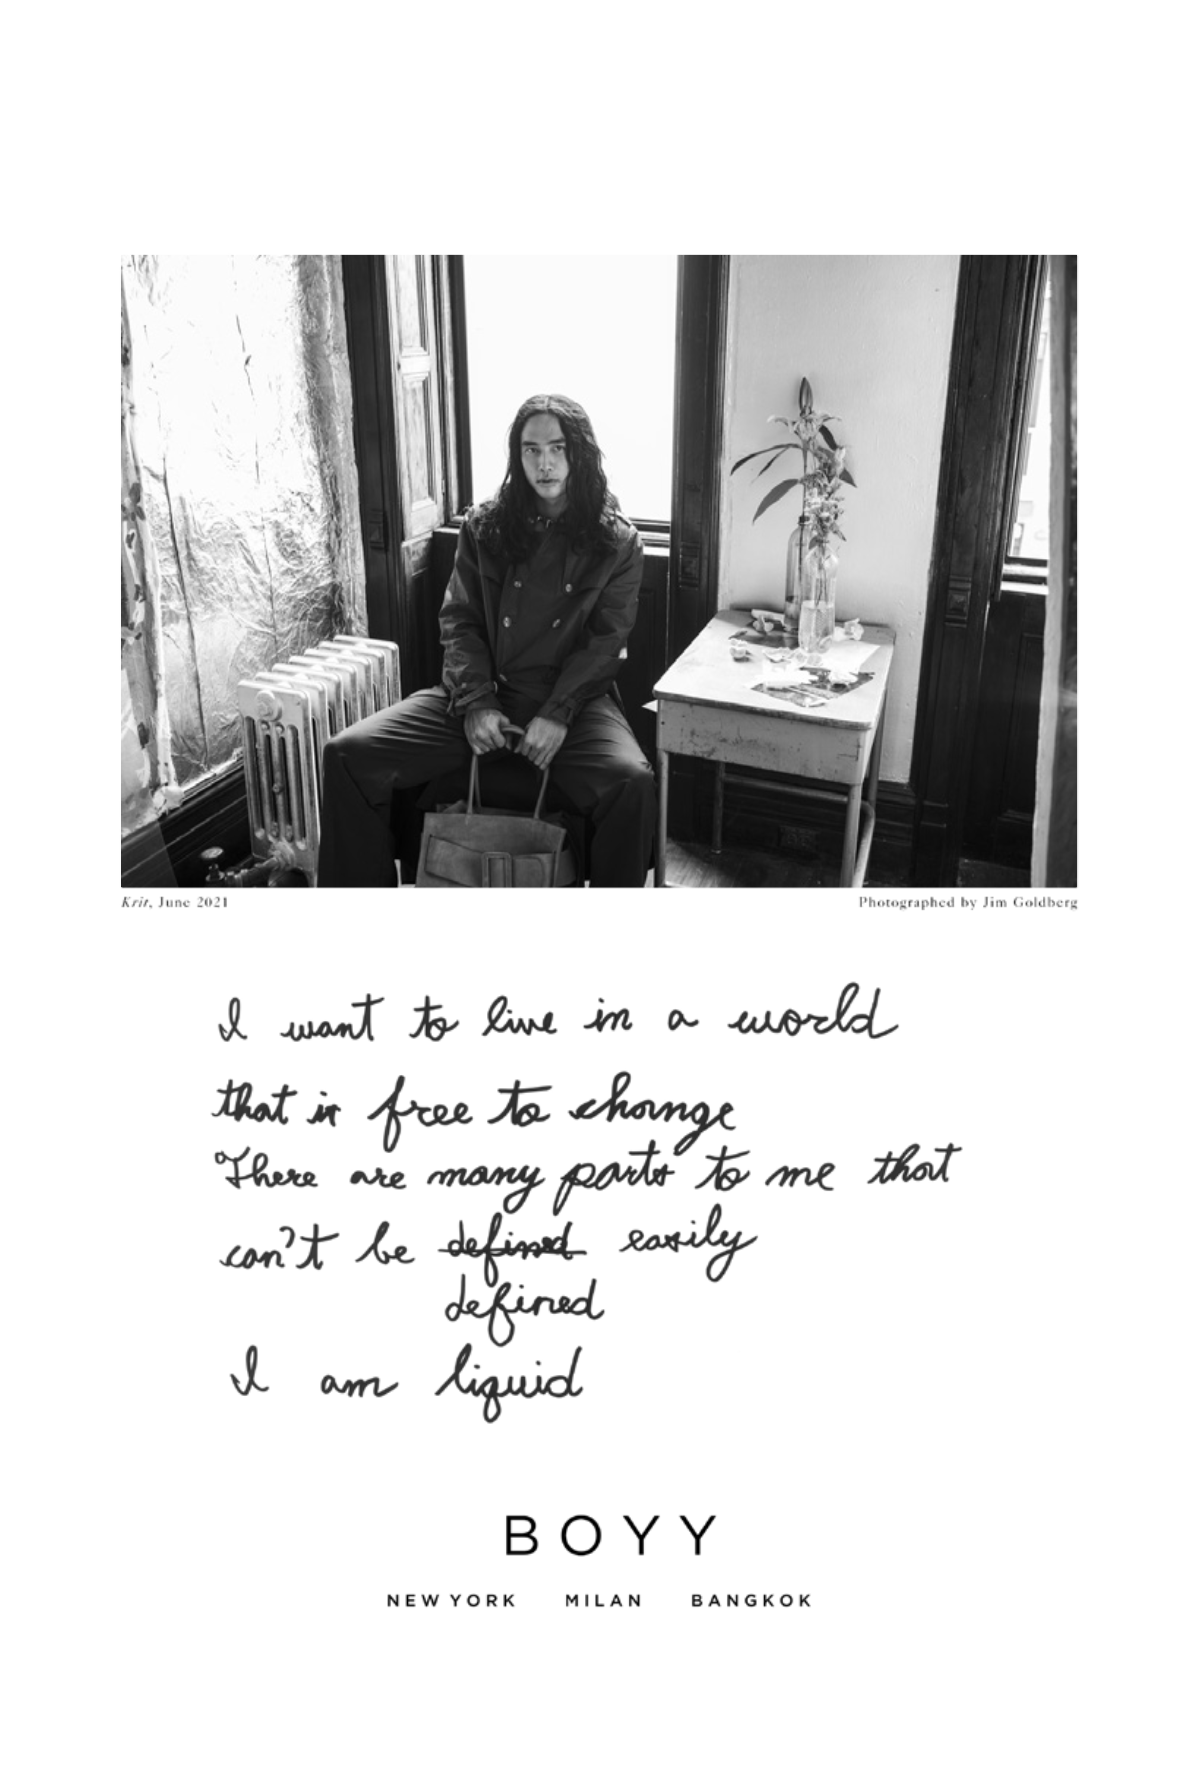 Krit, June 2021
Photographed by Jim Goldberg
I want to live in a world
that is free to change
There are many parts to me that
can't be defined easily
defined
I am liquid
BOYY
NEW YORK MILAN BANGKOK